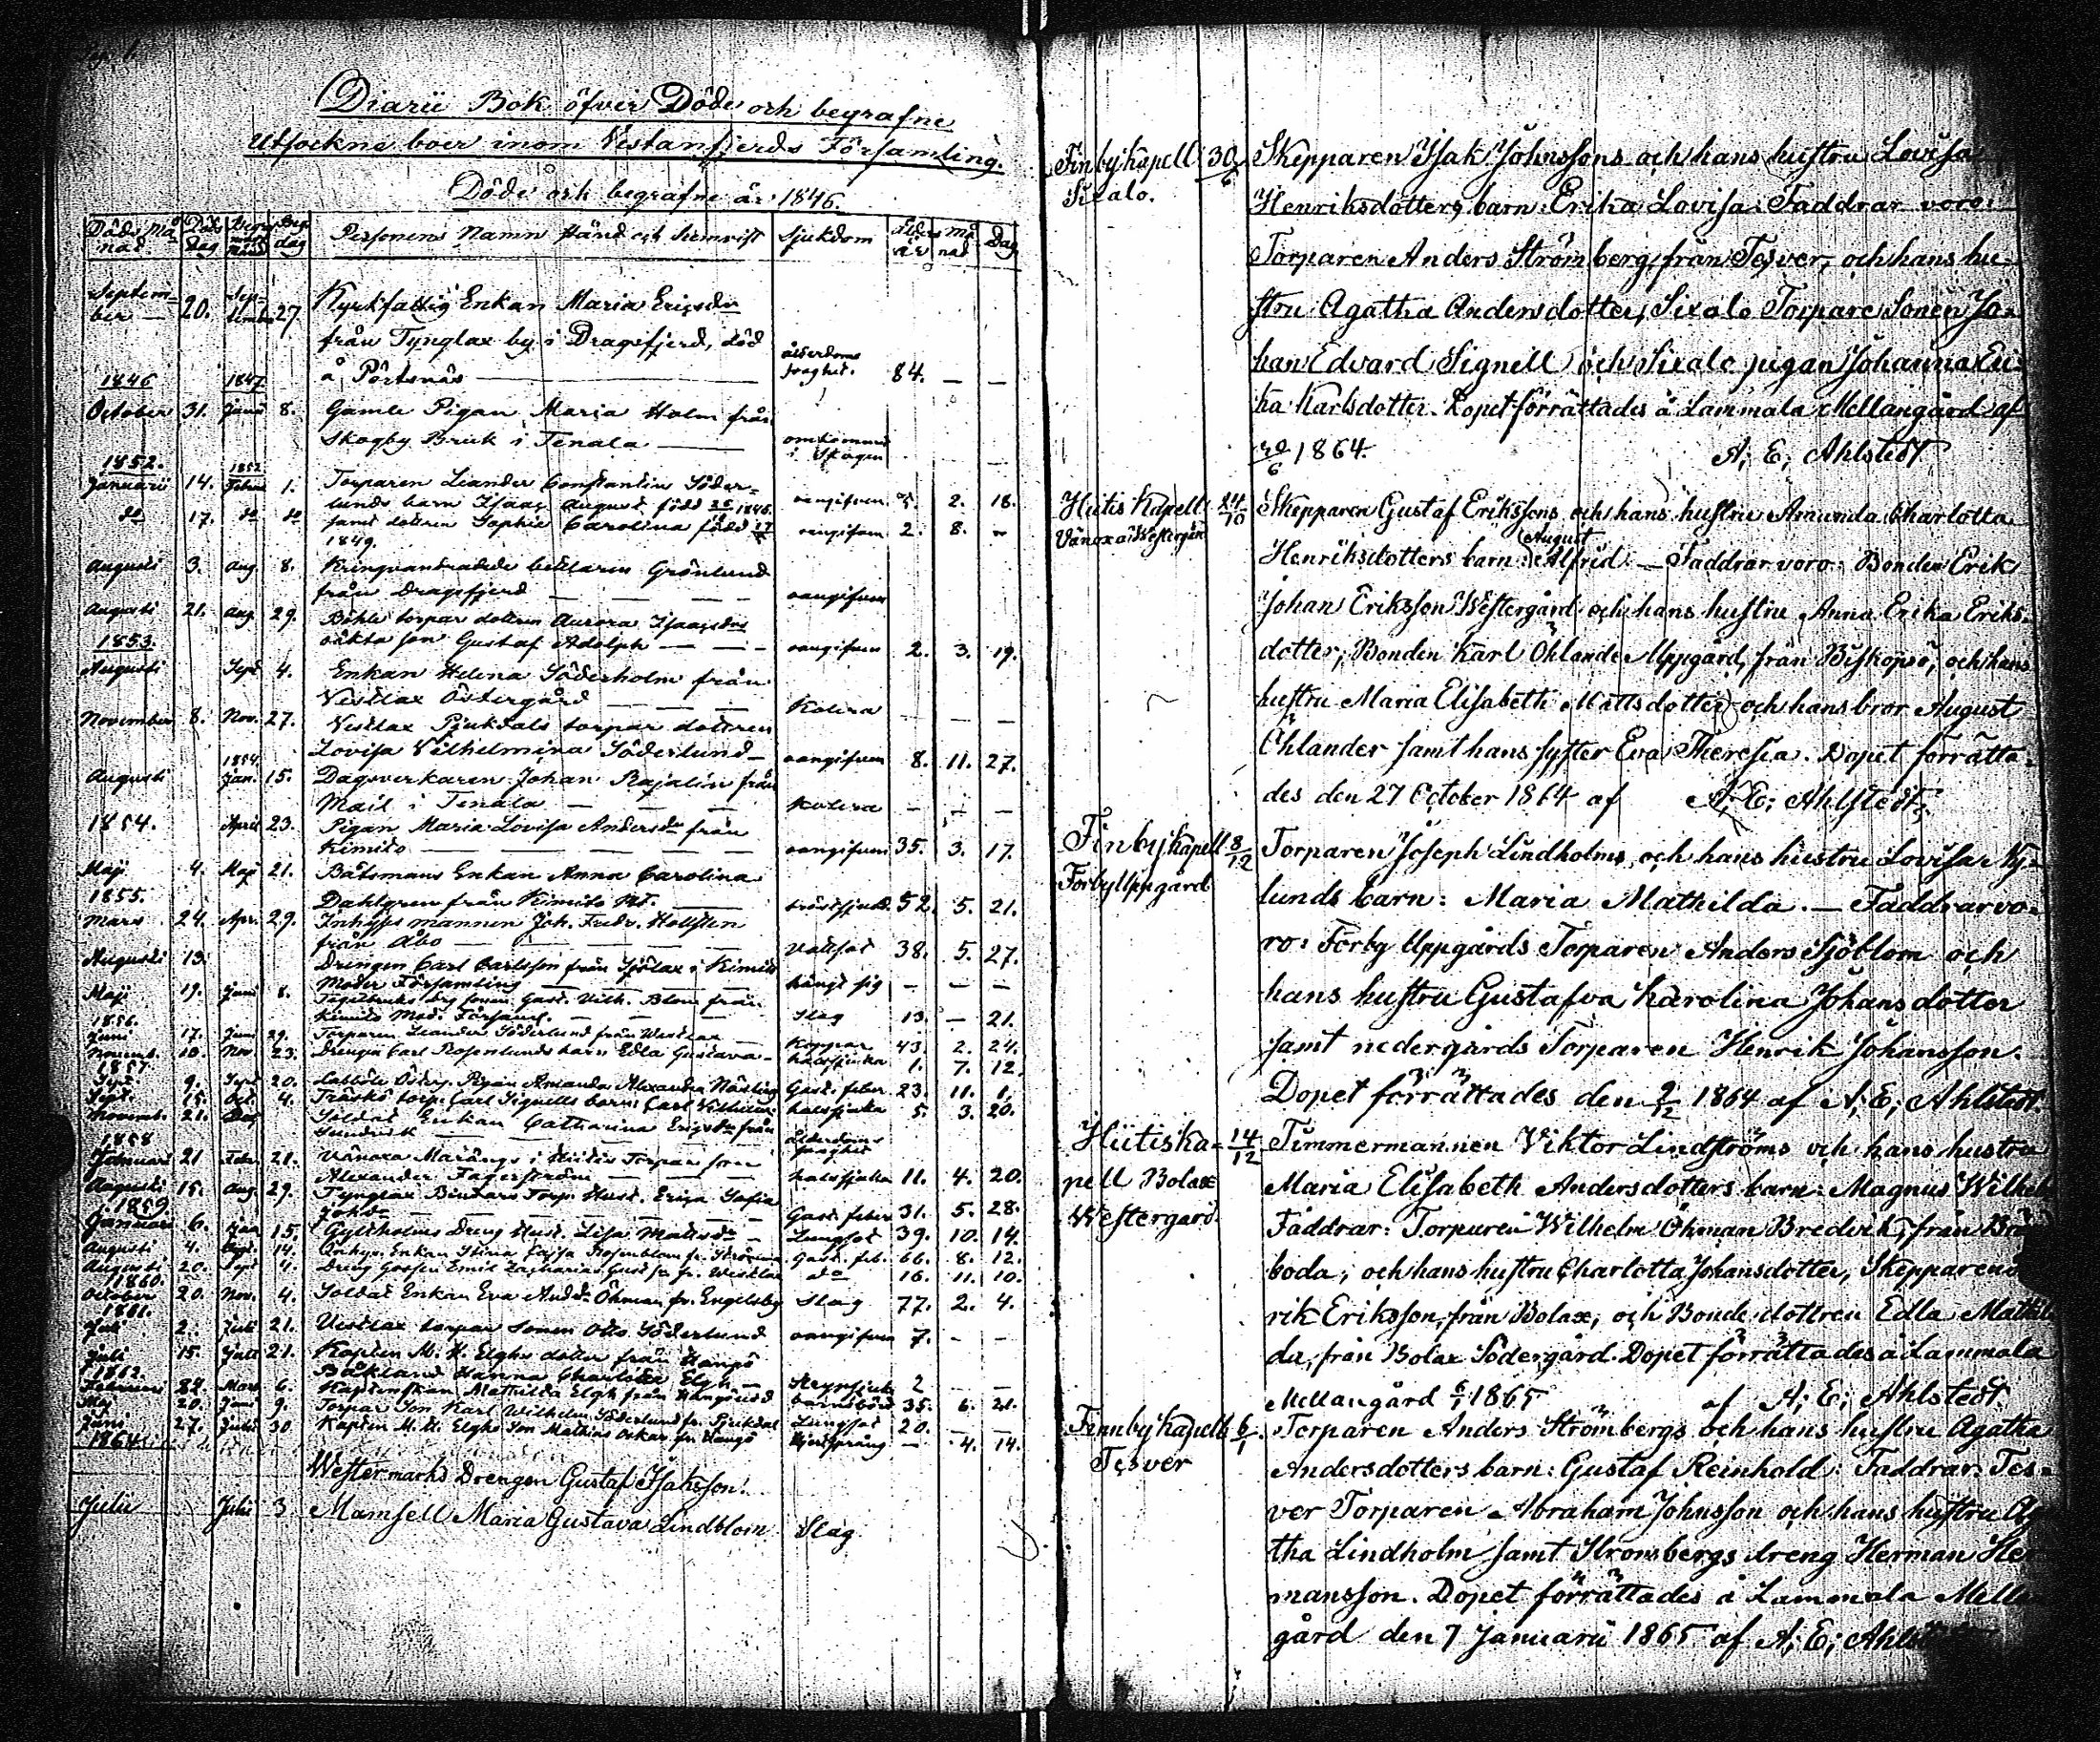 Diarii Bok öfver Döde och begrafne
Utsockne boer inom Vestanfjerds Församling.
Döde och begrafne år 1846.
Döds Må- Döds Begr. Begr. Personens Namn Stånd och hemvist Sjukdom Ålders Må- Dag
nad. dag månad dag år nad
Septem- 20. Sep- 27. Kyrkfattig Enkan Maria Ericsdr
ber — tember
från Tynglax by i Dragsfjerd, död ålderdoms
å Pörtsnäs — svaghet. 84. — —
1846 1847
October 31. Janu 8. Gamle Pigan Maria Holm från
Skogby Bruk i Tenala — omkommit i Skogen —
1852. 1852
Januarii 14. Febru 1. Torparen Leander Constantin Söder-
lunds barn Isaac August född 1846. oangifven 5. 2. 18.
do 17. do do samt dottren Sophie Carolina född oangifven 2. 8. —
1849.
Augusti 3. Aug. 8. Kringvandrande betlaren Grönlund
från Dragsfjerd — — — oangifven
Augusti 21. Aug 29. Böhle torpar dottren Aurora Isaacsdrs
oäkta son Gustaf Adolph — — oangifven 2. 3. 19.
1853.
Augusti Sept 4. Enkan Helena Söderholm från
Vestlax Östergård — — — Kolera
November 8. Nov. 27. Vestlax Pjukdals torpar dottren
Lovisa Vilhelmina Söderlund — oangifven 8. 11. 27.
1854.
Augusti Jan. 15. Dagsverkaren Johan Rajalin från
Mail i Tenala — — — Kolera — — —
1854. April 23. Pigan Maria Lovisa Andersdr från
Kimito — — — — oangifven 35. 3. 17.
Maji 4. Maj 21. Båtsmans Enkan Anna Carolina
Dahlgren från Kimito — bröstsjukd. 52. 5. 21.
1855.
Mars 24. Apr. 29. Inhyses mannen Joh. Fredr. Hollsten
från Åbo — — — Vattsot 38. 5. 27.
Augusti 13. Drengen Carl Carlsson från Sjölax i Kimito
Moder Församling — — hängt sig — — —
Maji 19. Juni 8. Tegelbruks drg sonen Gust. Vilh. Blom från
Kimito Mod. Församl. — — Slag 13. — 21.
1856.
Juni 17. Juni 29. Torparen Leander Söderlund från Westlax — Koppor 43. 2. 24.
Novemb. 10. Nov 23. Drengen Carl Rosenlunds barn Edla Gustava — halssjuka 1. 7. 12.
1857.
Sept 9. Sept 20. Labböle Österg. Pigan Amanda Alexandra Näsling Gast. feber 23. 11. 1.
Sept. 15. Oct. 4. Träskö torp. Carl Signells barn: Carl Vilhelm halssjuka 5. 3. 20.
Novemb. 21. Soldat Enkan Catharina Ericsdr från
Sundvik — — ålderdoms svaghet
1858
Februari 21 Febr. 21. Vänoxa Marängs i Hiitis Torpar son
Alexander Fagerström — — halssjuka 11. 4. 20.
Augusti 15. Aug. 29. Tynglax Bindars Torp. Hust. Erica Sofia
Johdr — — — Gast. feber 31. 5. 28.
1859.
Januari 6. Jan 15. Gyltholms Dreng Hust. Lisa Matsdr — Lungsot 39. 10. 14.
Augusti 4. Sept. 14. Inhys. Enkan Stina Cajsa Rosenblom fr. Strömma Gast. feb. 66. 8. 12.
Augusti 20. Sept 4. Dreng Gossen Emil Zacharias Gust. fr. Westlax do 16. 11. 10.
1860.
October 20. Nov. 4. Soldat Enkan Eva Andd. Öhman fr. Engelsby Slag 77. 2. 4.
1861.
Juli 2. Juli 21. Vestlax torpar sonen Otto Söderlund oangifven 7. — —
Juli 15. Juli 21. Kapten M. H. Elghs dotter från Hangö
Båkland Hanna Charlotta Elgh — Strypsjuka 2 — —
1862.
Februari Mars 6. Kaptenskan Mathilda Elgh från Hangöudd barnsbörd 35. 6. 21.
Maj 20. Juni 9. Torpar Son Karl Wilhelm Söderlund fr. Pjukdal Lungsot 20. — —
Juni 27. Juli 30 Kapten M. H. Elghs Son Mathias Oskar fr. Hangö — 4. 14.
1864
Westermarks Drengen Gustaf Isaksson.
Julii Julii 3 Mamsell Maria Gustava Lindblom Slag
Finby kapell 30/6 Skepparen Isak Johnssons och hans hustru Lovisa
Sixalo. Henriksdotters barn: Erika Lovisa. Faddrar voro:
Torparen Anders Strömberg, från Tesver, och hans hu-
stru Agatha Andersdotter, Sixalo Torpare Sonen Jo-
han Edvard Signell och Sixalo pigan Johanna Eri-
ka Karlsdotter. Dopet förrättades å Lammala Mellangård af
30/6 1864. A. E. Ahlstedt
Hiitis Kapell 24/10 Skepparen Gustaf Erikssons och hans hustru Amanda Charlotta
Vänoxa Westergård August
Henriksdotters barn: Alfrid. — Faddrar voro: Bonden Erik
Johan Eriksson Westergård och hans hustru Anna Erika Eriks-
dotter; Bonden Karl Öhlander Uppgård, från Biskopsö, och hans
hustru Maria Elisabeth Mattsdotter och hans bror August
Öhlander samt hans syster Eva Theresia. Dopet förrätta-
des den 27 October 1864 af A. E. Ahlstedt.
Finby kapell 8/12 Torparen Joseph Lindholms, och hans hustru Lovisa Ny-
Förby Uppgård lunds barn: Maria Mathilda. — Faddrar vo-
ro: Förby Uppgårds Torparen Anders Sjöblom och
hans hustru Gustafva Karolina Johansdotter
samt nedergårds Torparen Henrik Johansson.
Dopet förrättades den 9/12 1864 af A. E. Ahlstedt.
Hiitis ka- 14/12 Timmermannen Viktor Lindströms och hans hustru
pell Bolax Maria Elisabeth Andersdotters barn: Magnus Wilhel
Westergård. Faddrar: Torparen Wilhelm Öhman Bredvik, från
boda, och hans hustru Charlotta Johansdotter, Skepparen
rik Eriksson, från Bolax, och Bonde dottren Edla Mathil
da, från Bolax Södergård. Dopet förrättades å Lammala
Mellangård 6/1 1865 af A. E. Ahlstedt.
Finnby kapell 6/1. Torparen Anders Strömbergs och hans hustru Agatha
Tesver Andersdotters barn: Gustaf Reinhold. Faddrar: Tes-
ver Torparen Abraham Johnsson och hans hustru Aga
tha Lindholm samt Strömbergs dreng Herman Her
mansson. Dopet förrättades å Lammala Mellan
gård den 7 Januarii 1865 af A. E. Ahlstedt